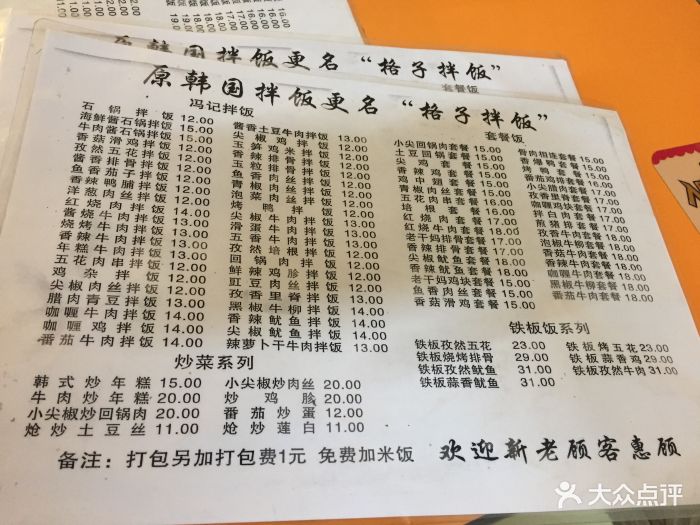 原韩国拌饭更名“格子拌饭”
套餐饭
原韩国拌饭更名“格子拌饭”
冯记拌饭
石锅拌饭 12.00
海鲜酱石锅拌饭 15.00
牛肉酱石锅拌饭 15.00
香菇滑鸡拌饭 12.00
孜然五花拌饭 12.00
酱香排骨拌饭 12.00
鱼香茄子拌饭 12.00
香辣鸭脯拌饭 12.00
洋葱肉丝拌饭 12.00
红烧牛肉拌饭 14.00
酱烧牛肉拌饭 14.00
香辣牛肉拌饭 14.00
年糕肉串拌饭 13.00
五花肉拌饭 12.00
鸡杂拌饭 12.00
尖椒肉丝拌饭 12.00
腊肉青豆拌饭 13.00
咖喱牛肉拌饭 14.00
咖喱鸡拌饭 14.00
番茄牛肉拌饭 14.00
酱香土豆牛肉拌饭 13.00
尖椒鸡拌饭 12.00
玉笋鸡米拌饭 12.00
香辣排骨拌饭 12.00
鱼香肉丝拌饭 12.00
青椒肉丝拌饭 12.00
泡菜肉丝拌饭 12.00
烤鸭拌饭 12.00
尖椒牛肉拌饭 14.00
滑蛋牛肉拌饭 14.00
五香牛肉拌饭 14.00
孜然培根拌饭 13.00
回锅肉拌饭 12.00
鲜辣鸡胗拌饭 12.00
豇豆肉丝拌饭 12.00
孜香里脊拌饭 13.00
黑椒牛柳拌饭 14.00
香辣鱿鱼拌饭 14.00
尖椒鱿鱼拌饭 14.00
辣萝卜干牛肉拌饭 14.00
套餐饭
小尖椒回锅肉套餐 15.00
土豆回锅套餐 15.00
尖鸡套餐 15.00
香鸡套餐 15.00
鸡中翅套餐 16.00
青椒肉丝套餐 15.00
五花肉套餐 15.00
培根套餐 16.00
红烧肉套餐 17.00
红烧牛肉套餐 18.00
老干妈排骨套餐 17.00
香辣排骨套餐 17.00
香辣鱿鱼套餐 18.00
老干妈鸡块套餐 17.00
鱼香肉丝套餐 15.00
香菇滑鸡套餐 15.00
骨肉相连套餐 15.00
香爆鸭套餐 15.00
烤鸭套餐 15.00
番茄鸡翅套餐 16.00
小尖腊肉套餐 16.00
孜香鸡块套餐 17.00
拌白肉套餐 17.00
煎猪排套餐 17.00
孜香牛肉套餐 18.00
泡椒牛柳套餐 18.00
五香牛肉套餐 18.00
香辣牛肉套餐 18.00
咖喱牛肉套餐 18.00
黑椒牛柳套餐 18.00
番茄牛肉套餐 18.00
铁板饭系列
铁板孜然五花 23.00
铁板烧烤排骨 29.00
铁板孜然鱿鱼 31.00
铁板蒜香鱿鱼 31.00
铁板烤五花 23.00
铁板蒜香鸡 29.00
铁板孜然牛肉 31.00
炒菜系列
韩式炒年糕 15.00
牛肉炒年糕 20.00
小尖椒炒回锅肉 20.00
炝炒土豆丝 11.00
小尖椒炒肉丝 20.00
炒鸡胗 20.00
番茄炒蛋 12.00
炝炒莲白 11.00
备注：打包另加打包费1元 免费加米饭
欢迎新老顾客惠顾
大众点评